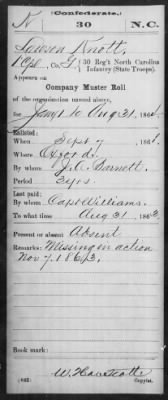 Confederate.
K 30 N.C.
Lawson Knott
1 Cpl, Co. G, 30 Reg't North Carolina
Infantry (State Troops)
Appears on
Company Muster Roll
of the organization named above,
for Jany 1 to Aug 31, 1864.
Enlisted:
When Sept 7, 1861.
Where Oxford
By whom J. C. Barnett
Period 3 yrs.
Last paid:
By whom Capt Williams.
To what time Aug 31, 1863.
Present or absent Absent
Remarks: Missing in action
Nov 7, 1863.
Book mark:
(642) Copyist.